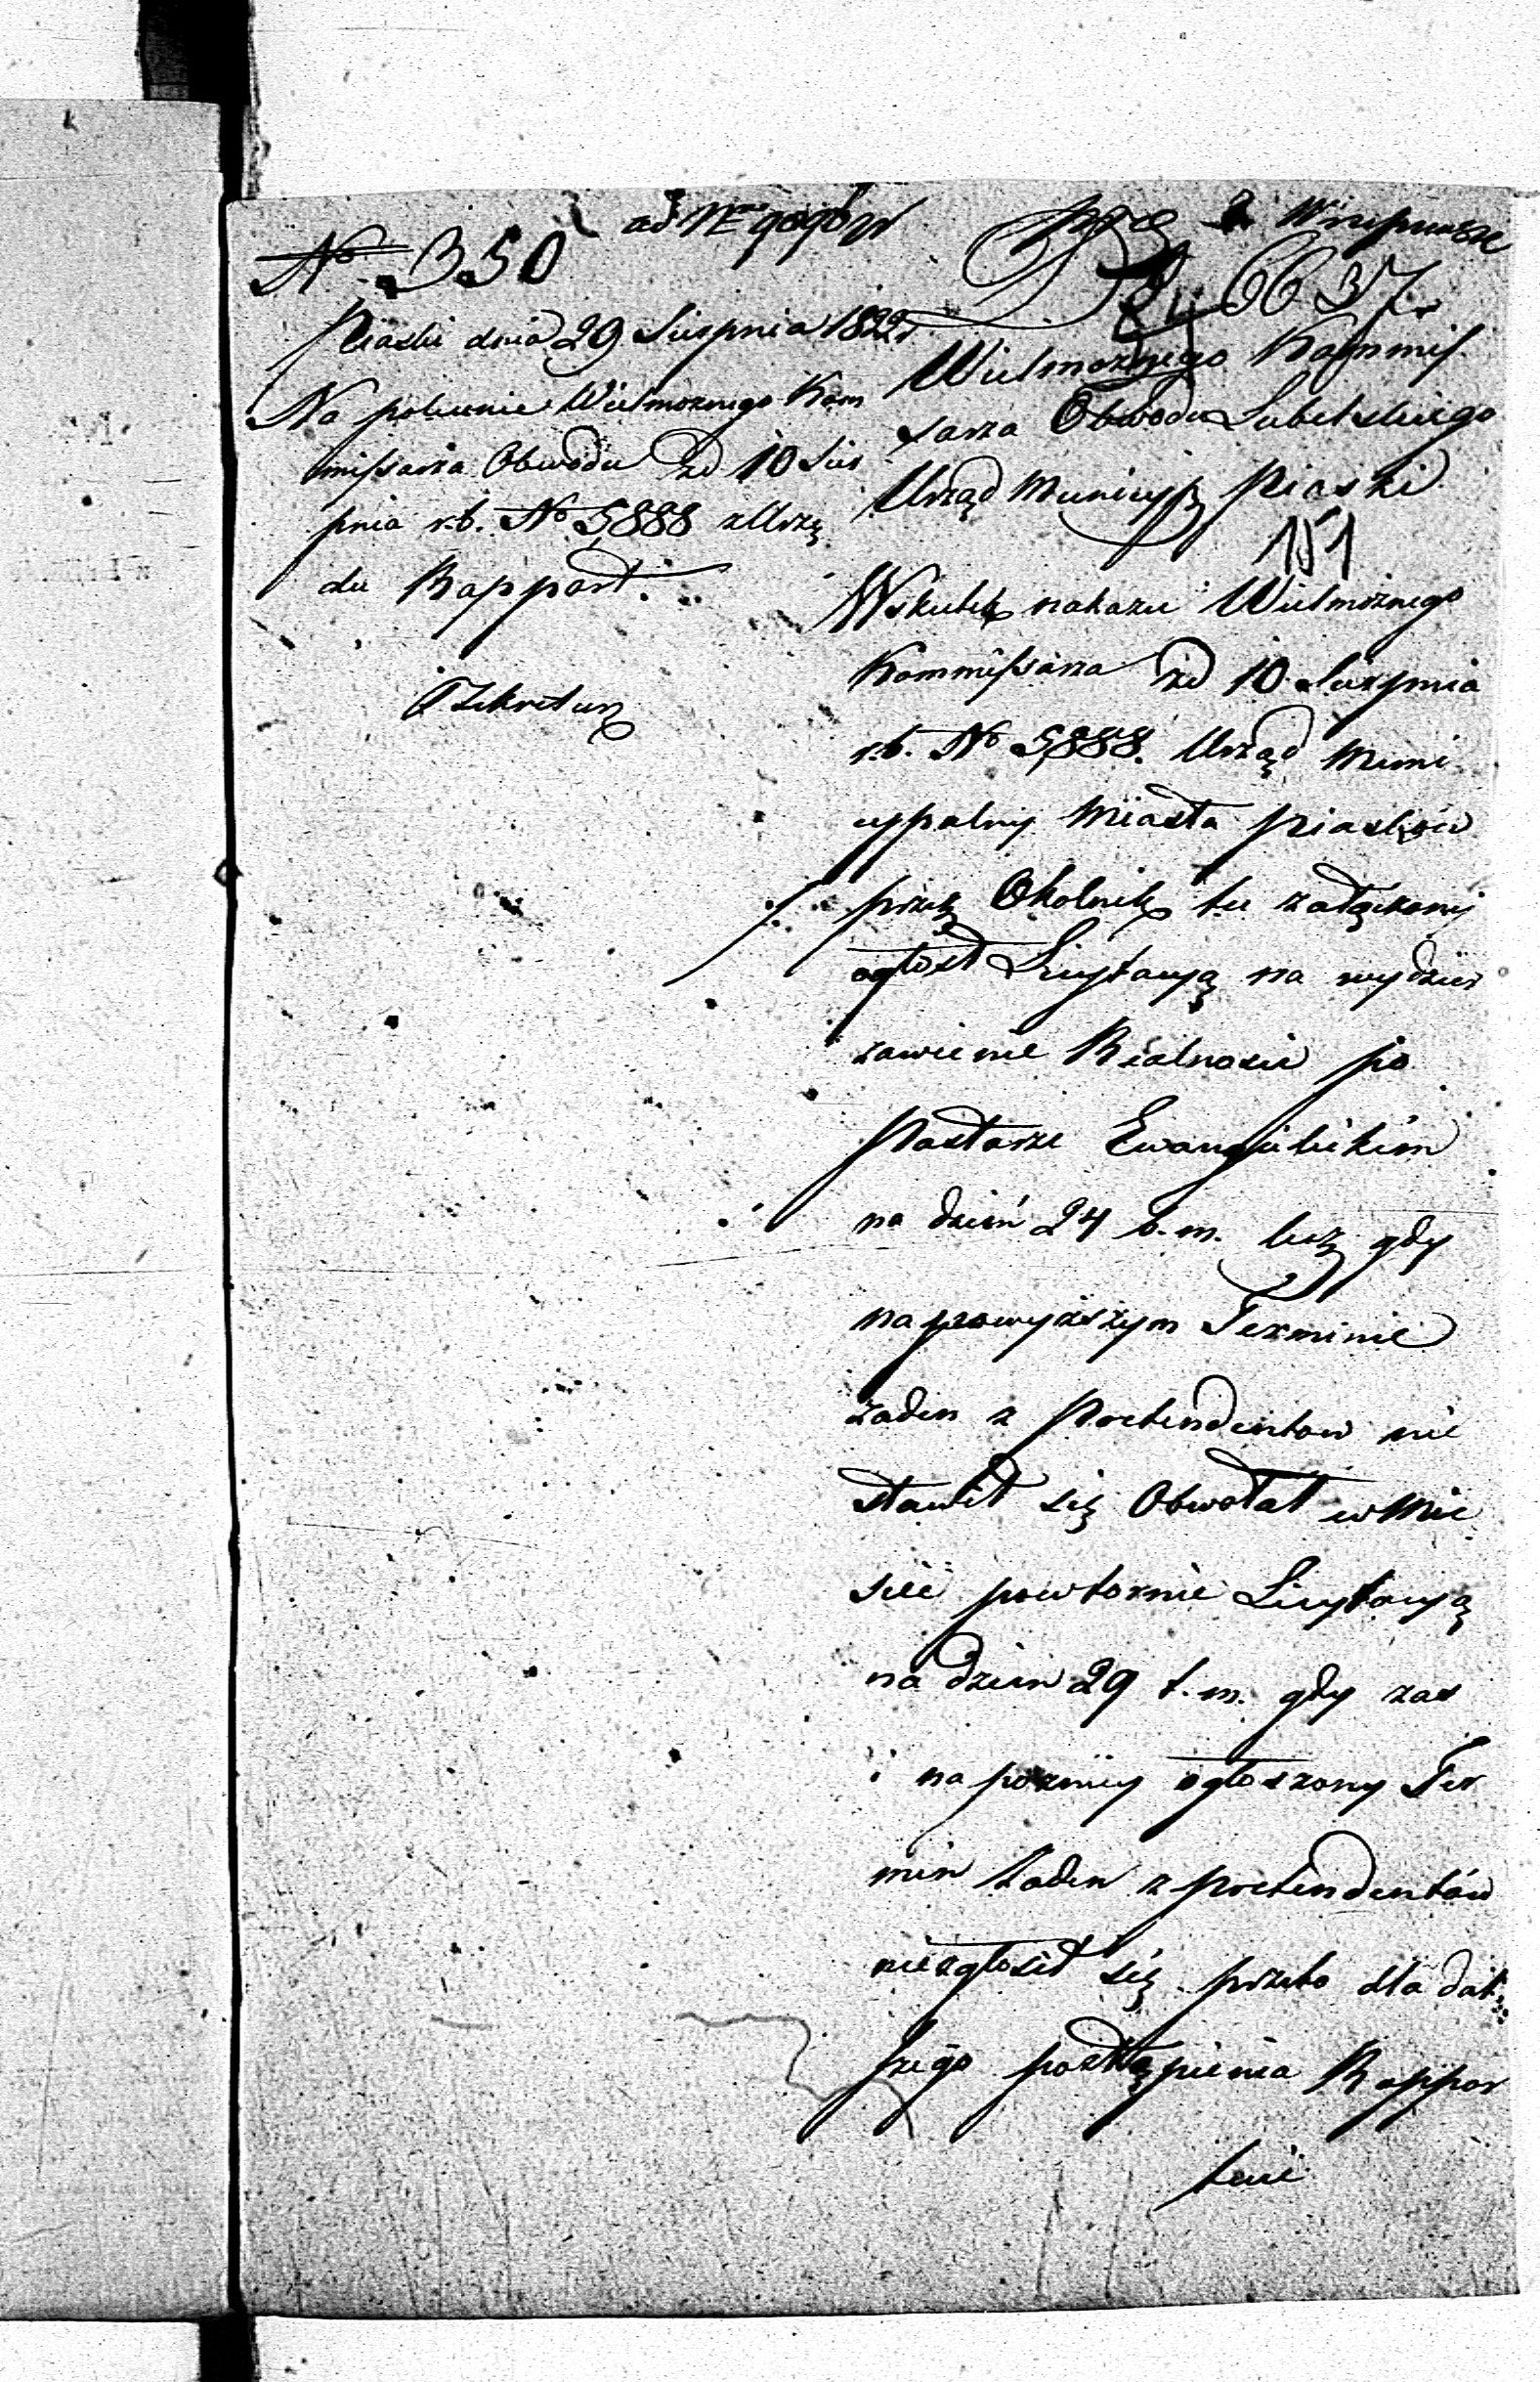 No 350
Piaski dnia 29 Sierpnia 1822 r
Na polecenie Wielmożnego Kom
missarza Obwodu zd 10 Sier
pnia r.b. No 5888 z Urzę
du Rapport.
ad N 9096
pr 2 Września
6637
Wielmożnego Kommis
sarza Obwodu Lubelskiego
Urząd Municyp Piaski
151
W skutek nakazu Wielmożnego
Kommissarza zd 10 Sierpnia
r.b. No 5888. Urząd Muni
cypalny Miasta Piasków
przez Okolnik tu załączony
ogłosił Licytacyą na wydzier
żawienie Realności po
Pastorze Ewangielickim
na dzień 24 b.m. lecz gdy
na powyższym Terminie
żaden z Pretendentow nie
stawił się Obwołał w Mie
ście powtornie Licytacyą
na dzien 29 t.m. gdy zas
i na pozniey ogłoszony Ter
min żaden z pretendentów
niezgłosił się przeto dla dal
szego postąpienia Rappor
tuie